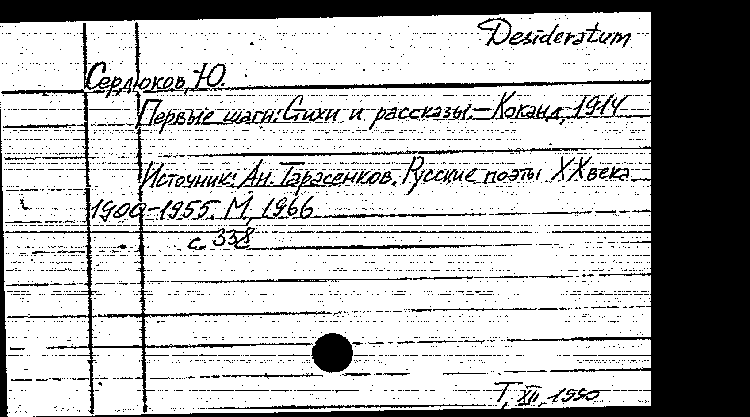 Desideratum
Сердюков, Ю.
Первые шаги: Стихи и рассказы. – Коканд, 1914
Источник: Ан. Тарасенков. Русские поэты XX века
1900–1955. М., 1966
с. 338
Т, XII, 1990